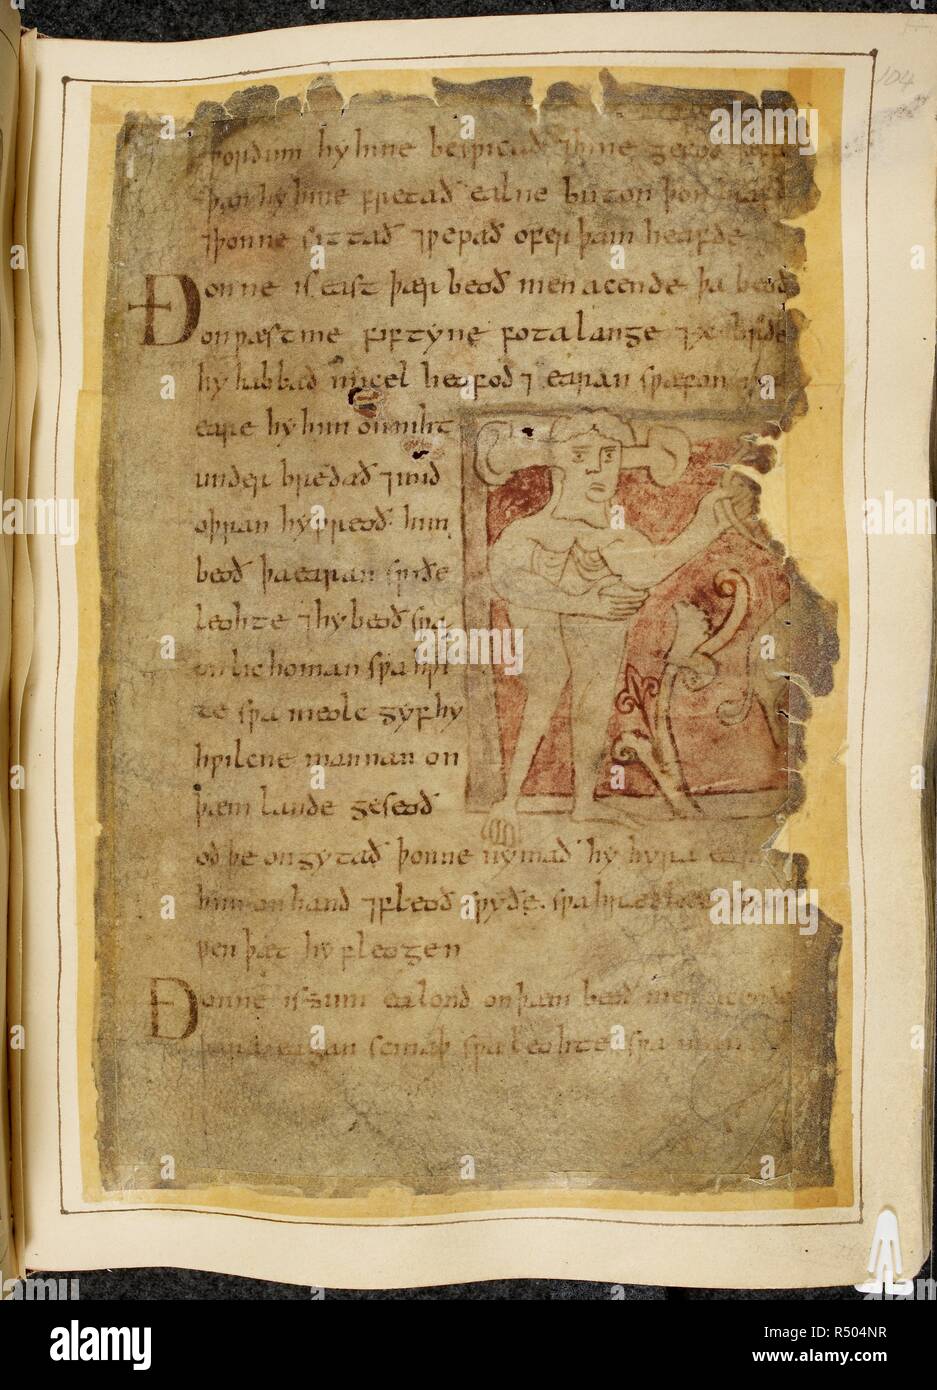 104
wordum hy hine beswicað ⁊ hine gefoð
þan hy hine fretað ealne buton þon
⁊ þonne sittað ⁊ wepað ofer þam heafde
Ðonne is east þær beoð men acende þa beoð
on wæstme fiftyne fota lange ⁊ x on brǣde
hy habbað micel heafod ⁊ earan swa fon
eare hy him on niht
under bredað ⁊ mid
oþran hy wreoð him
beoð þa earan swiðe
leohte ⁊ hy beoð swa
on lichoman swa hwi
te swa meolc gyf hy
hwilcne mannan on
þæm lande geseoð
oð þe ongytað þonne nymað hy hyra
him on hand ⁊ fleoð swyðe swa hrædlice
wen þæt hy fleogen
Ðonne is sum ealond on þæm beoð men acende
þara eagan scinaþ swa leohte swa
alamy stock photo
alamy
Image ID: R504NR
www.alamy.com